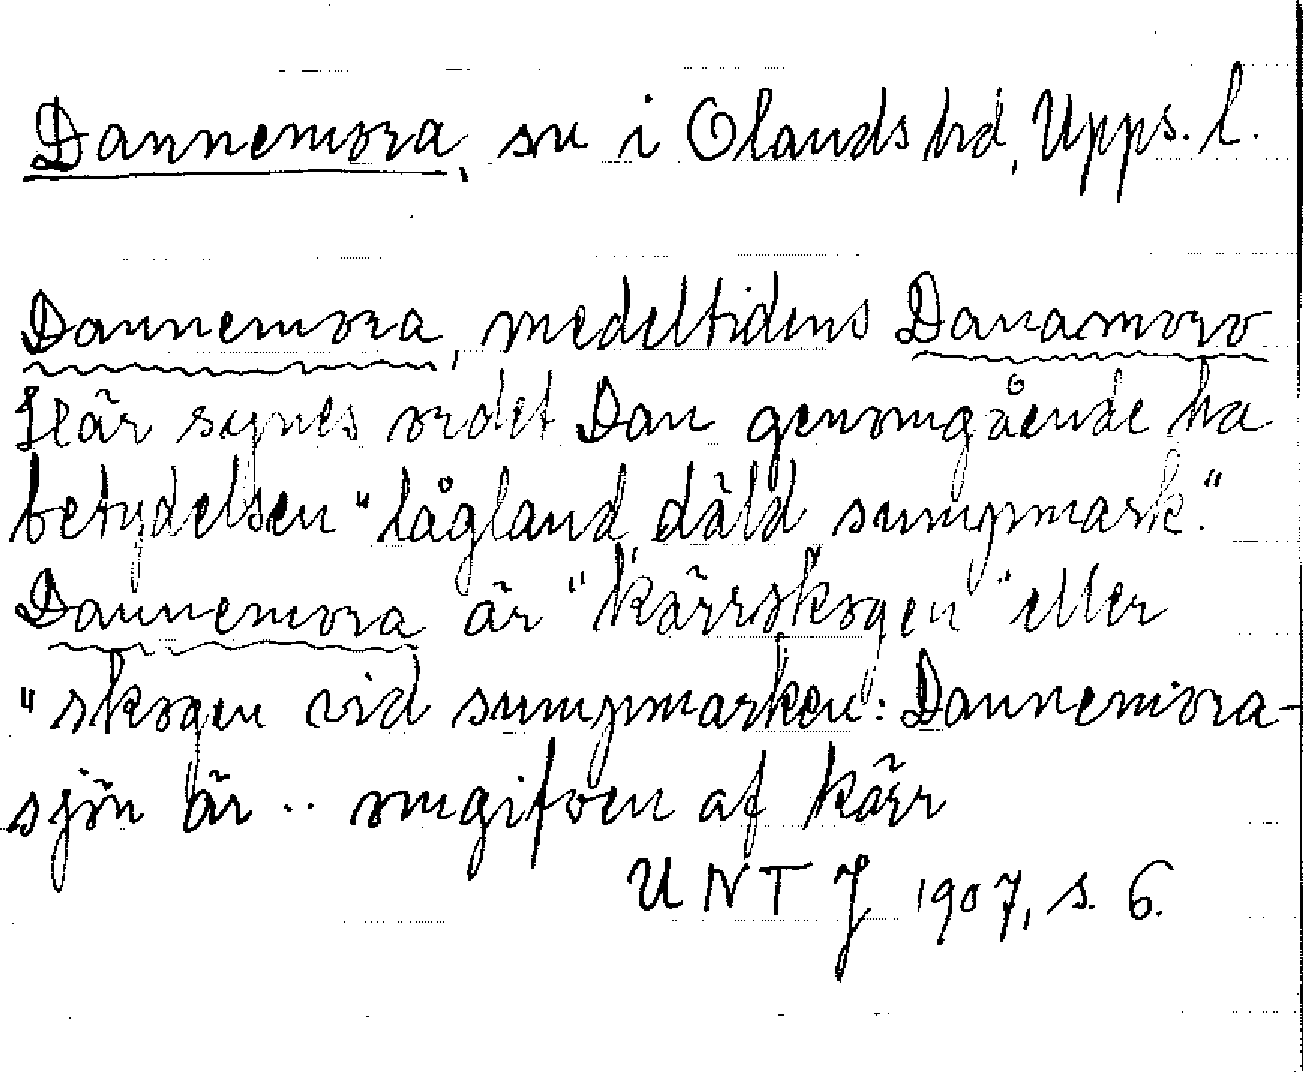 Dannemora, sn i Olands hd, Upps. l.
Dannemora, medeltidens Danamoro
Här synes ordet Dan genomgående ha
betydelsen "lågland, däld, sumpmark."
Dannemora är "kärrskogen" eller
"skogen vid sumpmarken: Dannemora-
sjön är .. omgifven af kärr
UNT J 1907, s. 6.